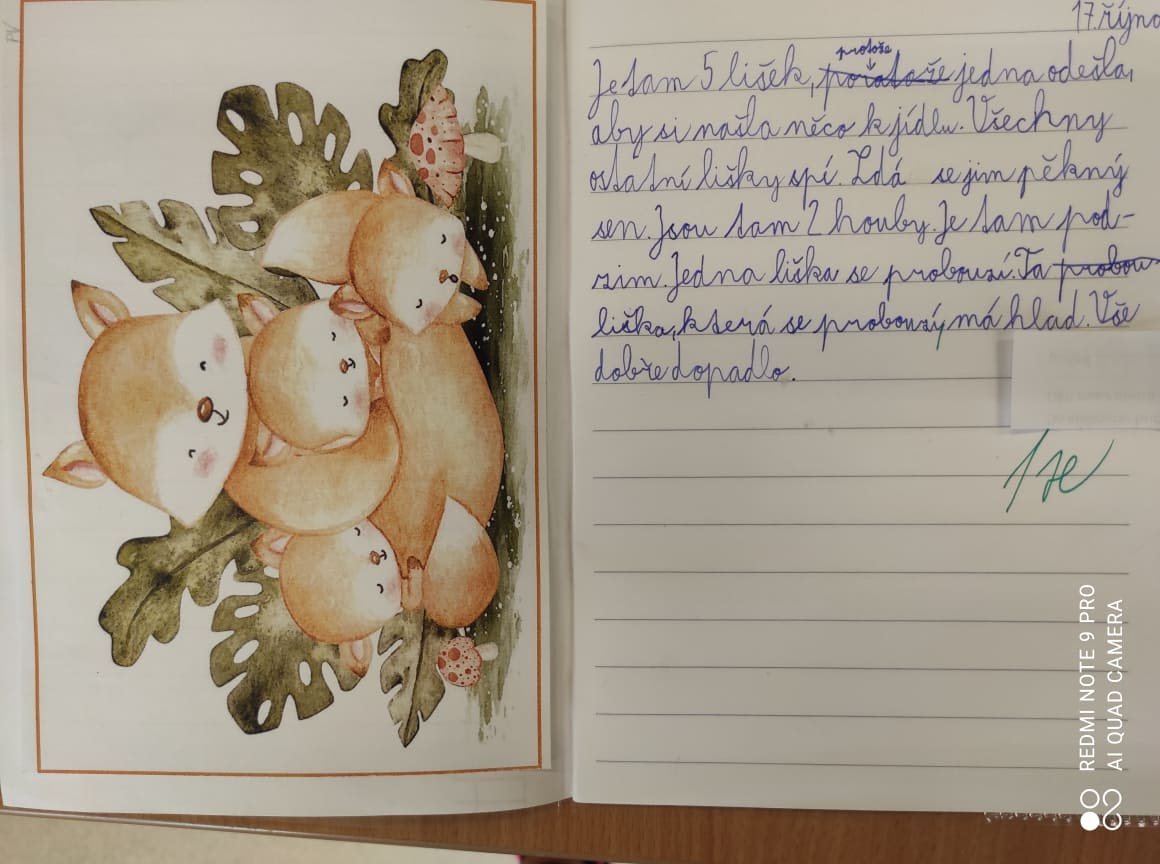 17. října
protože
Je tam 5 lišek, poratože jedna odešla,
aby si našla něco k jídlu. Všechny
ostatní lišky spí. Zdá se jim pěkný
sen. Jsou tam 2 houby. Je tam pod-
zim. Jedna liška se probouzí. Ta probou
liška, která se probouzý má hlad. Vše
dobře dopadlo.
REDMI NOTE 9 PRO
AI QUAD CAMERA